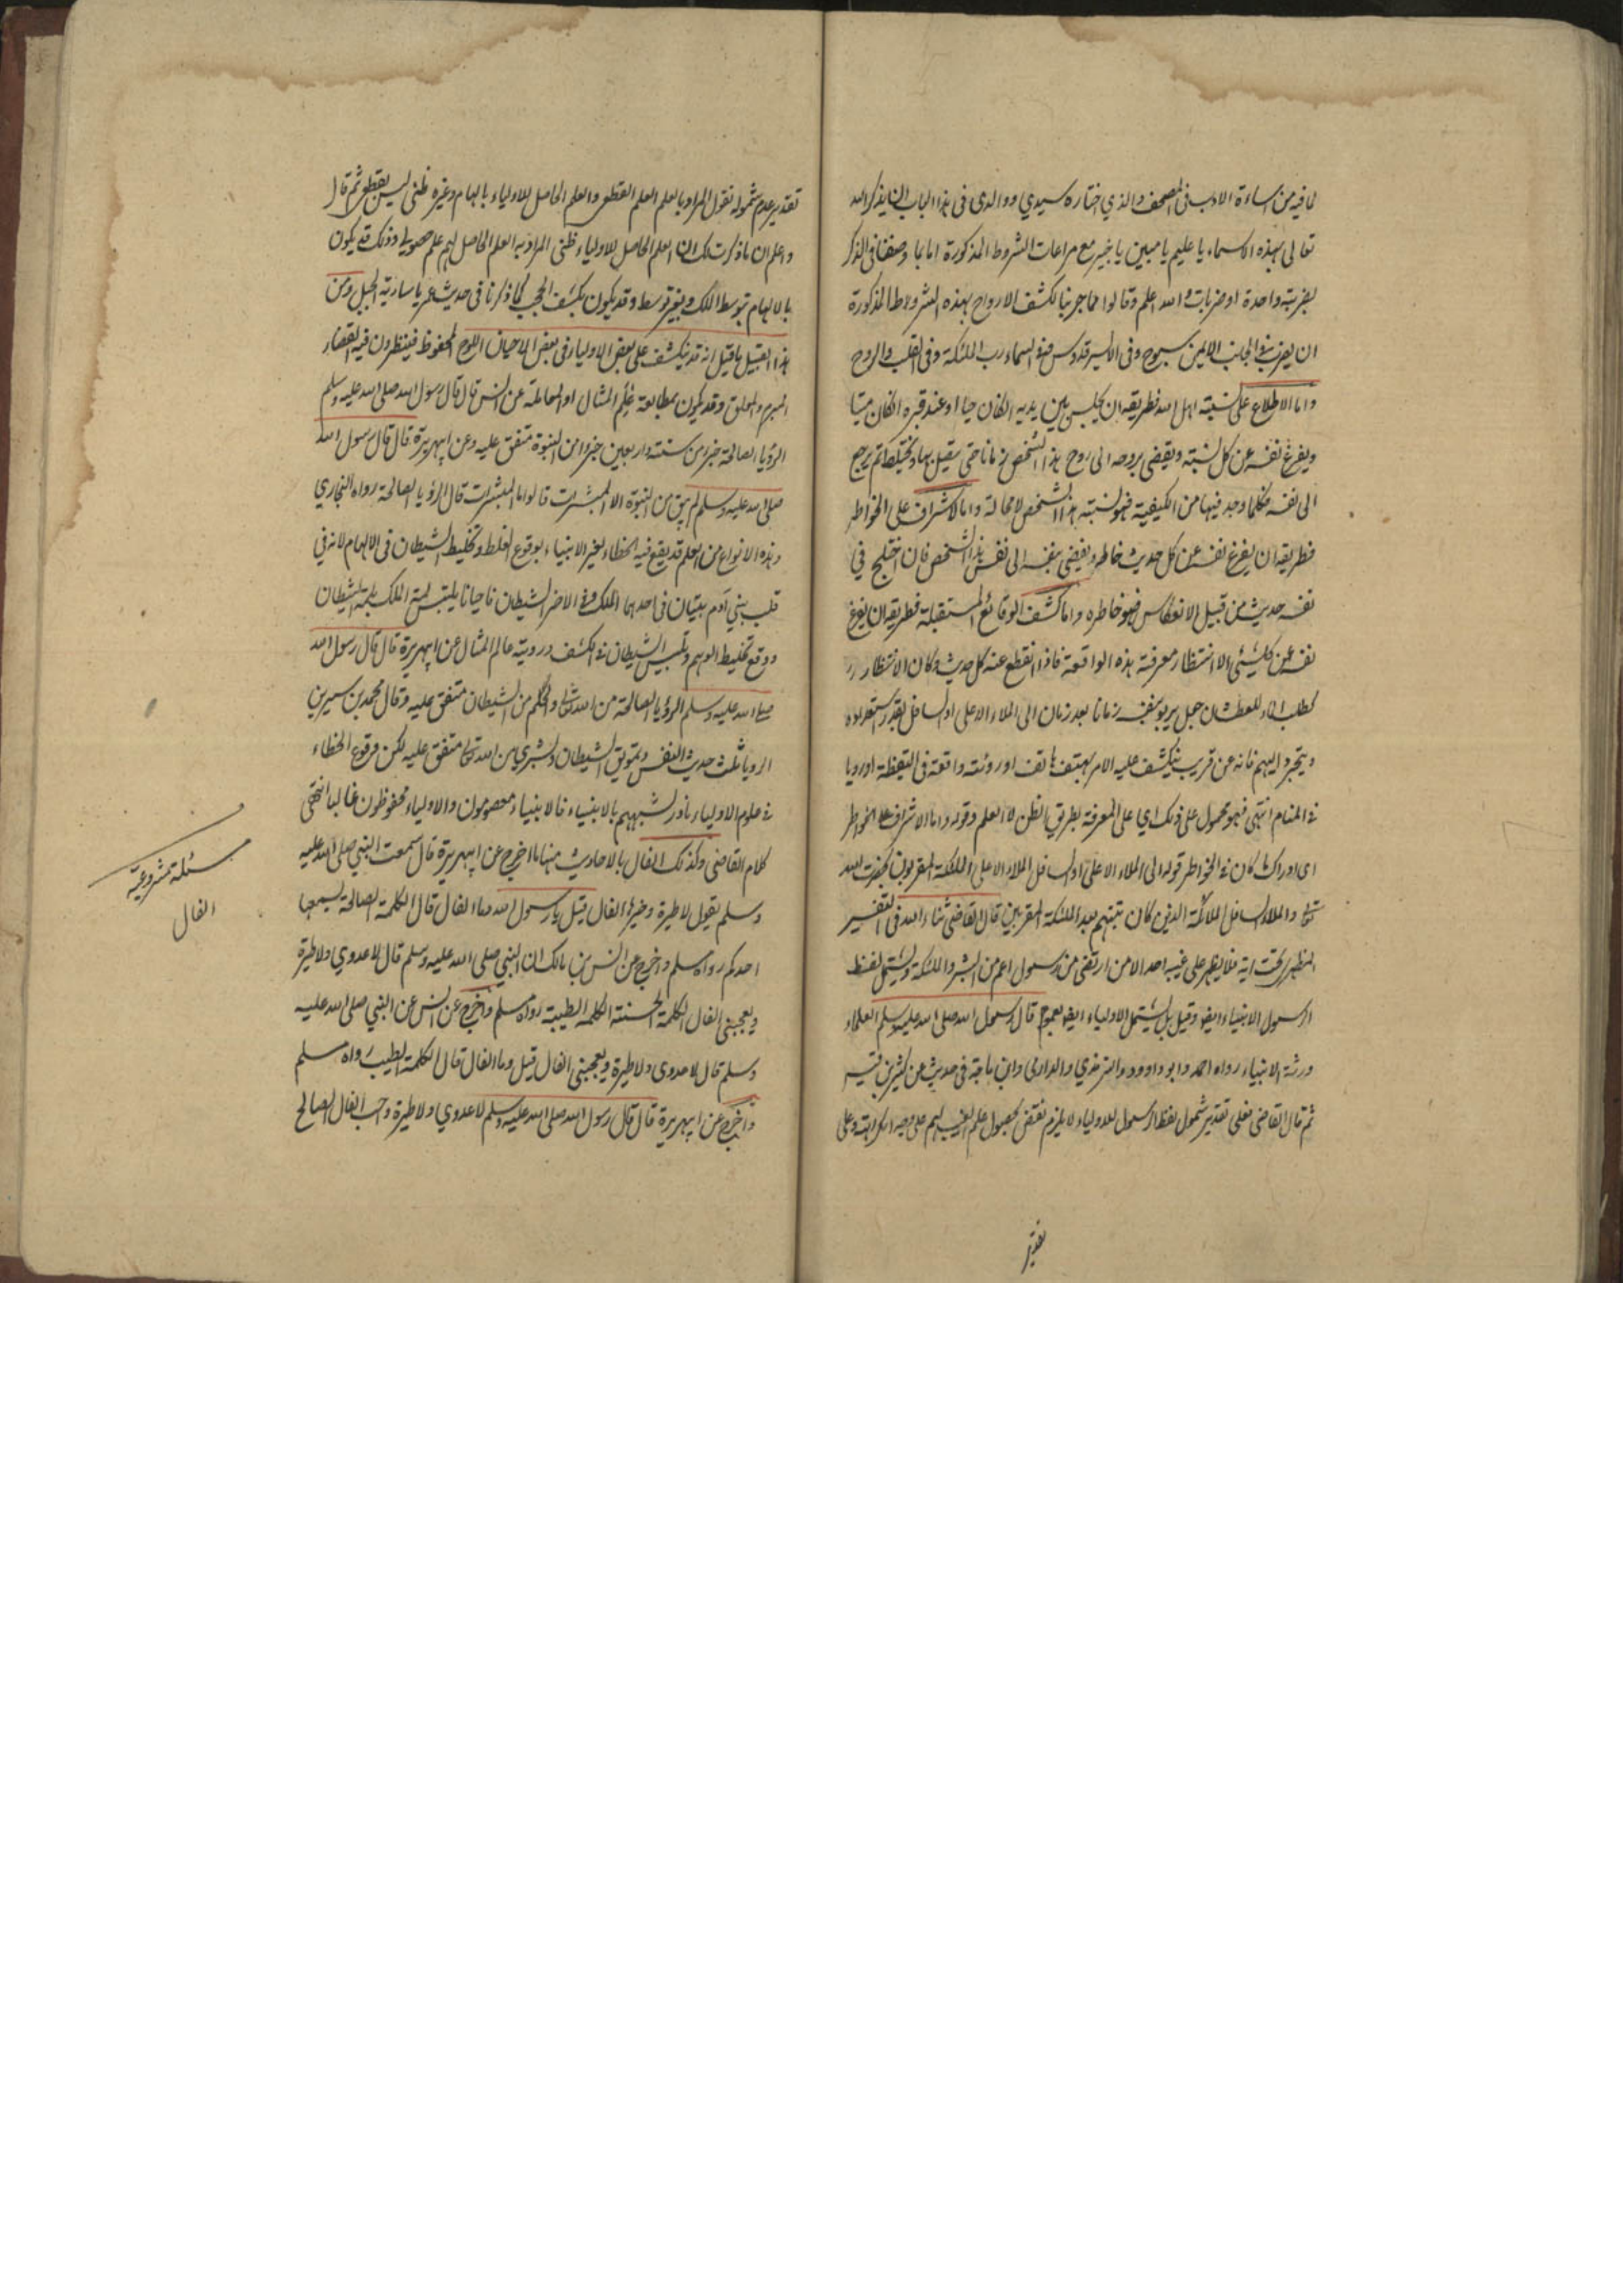 لما فيه من اساءة الادب فى المصحف والذي اختاره سيدي ووالدى فى هذا الباب ان يذكر الله
تعالى بهذه الاسماء يا عليم يا مبين يا خبير مع مراعات الشروط المذكورة اما بما وصفنا فى الذكر
بضربة واحدة او ضربات والله اعلم وقالوا مما جربنا لكشف الارواح بهذه الشروط المذكورة
ان يضرب فى الجانب الايمن سبوح وفى الايسر قدوس وفى السماء رب الملئكة وفى القلب والروح
واما الاطلاع على نسبة اهل الله فطريقه ان يجلس بين يديه ان كان حيا او عند قبره ان كان ميتا
ويفرغ نفسه عن كل نسبة ويفضى بروحه الى روح هذا الشخص زمانا حتى يتصل بها ويختلط ثم يرجع
الى نفسه فكلما وجد فيها من الكيفية فهو نسبة هذا الشخص لا محالة واما الاشراف على الخواطر
فطريقه ان يفرغ نفسه عن كل حديث خاطر ويفضى بنفسه الى نفس هذا الشخص فان اختلج في
نفسه حديث من قبيل الانعكاس فهو خاطره واما كشف الوقائع المستقبلة فطريقه ان يفرغ
نفسه عن كل شئى الا انتظار معرفة هذه الواقعة فاذا انقطع عنه كل حديث وكان الانتظار
كطلب الماء للعطشان جعل يربو بنفسه زمانا بعد زمان الى الملاء الاعلى او السافل بقدر استعداده
ويتجرد اليهم فانه عن قريب ينكشف عليه الامر بهتف هاتف او رؤية واقعة فى اليقظة او رويا
فى المنام انتهى فهو محمول على ذلك اي على المعرفة بطريق الظن لا العلم وقوله واما الاشراف على الخواطر
اى ادراك ما كان فى الخواطر قوله الى الملاء الاعلى او السافل الملاء الاعلى الملئكة المقربون بحضرت الله
تعالى والملاء السافل الملائكة الذين كان رتبتهم بعد الملئكة المقربين قال القاضى ثناء الله فى التفسير
المظهرى تحت اية فلا يظهر على غيبه احد الا من ارتضى من رسول اعم من البشر والملئكة ويشتمل لفظ
الرسول الانبياء ايضا وقيل بل يشتمل الاولياء ايضا بعموم قال رسول الله صلى الله عليه وسلم العلماء
ورثة الانبياء رواه احمد وابو داوود والترمذي والدارمى وابن ماجة فى حديث عن كثير بن قيس
ثم قال القاضى فعلى تقدير شمول لفظ الرسول للاولياء لا يلزم نقض بحصول علم الغيب لهم على وجه الكرامة وعلى
تقدير
تقدير عدم شموله نقول المراد بالعلم العلم القطعى والعلم الحاصل للاولياء بالهام وغيره ظنى ليس بقطعى ثم قال
واعلم ان ما ذكرت لك ان العلم الحاصل للاولياء ظنى المراد به العلم الحاصل لهم علم حصولى وذلك قد يكون
بالالهام بتوسط الملك وبغير توسط وقد يكون بكشف الحجب كما ذكرنا فى حديث عمر يا سارية الجبل ومن
هذا القبيل ما قيل انه قد ينكشف على بعض الاولياء فى بعض الاحيان اللوح المحفوظ فينظرون فيه القضاء
المبرم والمعلق وقد يكون بمطالعة علم المثال او المعاملة عن انس قال قال رسول الله صلى الله عليه وسلم
الرؤيا الصالحة جزء من ستة واربعين جزءا من النبوة متفق عليه وعن ابيهريرة قال قال رسول الله
صلى الله عليه وسلم لم يبق من النبوة الا المبشرات قالوا ما المبشرات قال الرؤيا الصالحة رواه البخاري
وهذه الانواع من العلم قد يقع فيه الخطاء لغير الانبياء بوقوع الغلط وتخليط الشيطان فى الالهام لانه فى
قلب بني آدم بيتان فى احدهما الملك وفى الاخر الشيطان فاحيانا يلتبس لمة الملك بلمة الشيطان
ووقع تخليط الوهم وتلبيس الشيطان فى الكشف وروية عالم المثال عن ابيهريرة قال قال رسول الله
صلى الله عليه وسلم الرؤيا الصالحة من الله تعالى والحلم من الشيطان متفق عليه وقال محمد بن سيرين
الرويا ثلث حديث النفس وتخويف الشيطان وبشرى من الله تعالى متفق عليه لكن وقوع الخطاء
فى علوم الاولياء نادر لشبههم بالانبياء فالانبياء معصومون والاولياء محفوظون غالبا انتهى
كلام القاضى وكذلك الفال بالاحاديث منها ما اخرج عن ابيهريرة قال سمعت النبي صلى الله عليه
وسلم يقول لا طيرة وخيرها الفال قيل يا رسول الله وما الفال قال الكلمة الصالحة يسمعها
احدكم رواه مسلم واخرج عن انس بن مالك ان النبي صلى الله عليه وسلم قال لا عدوي ولا طيرة
ويعجبني الفال الكلمة الحسنة الكلمة الطيبة رواه مسلم واخرج عن انس عن النبي صلى الله عليه
وسلم قال لا عدوى ولا طيرة ويعجبنى الفال قيل وما الفال قال الكلمة الطيبة رواه مسلم
واخرج عن ابيهريرة قال قال رسول الله صلى الله عليه وسلم لا عدوي ولا طيرة واحب الفال الصالح
مسئلة مشروعية
الفال